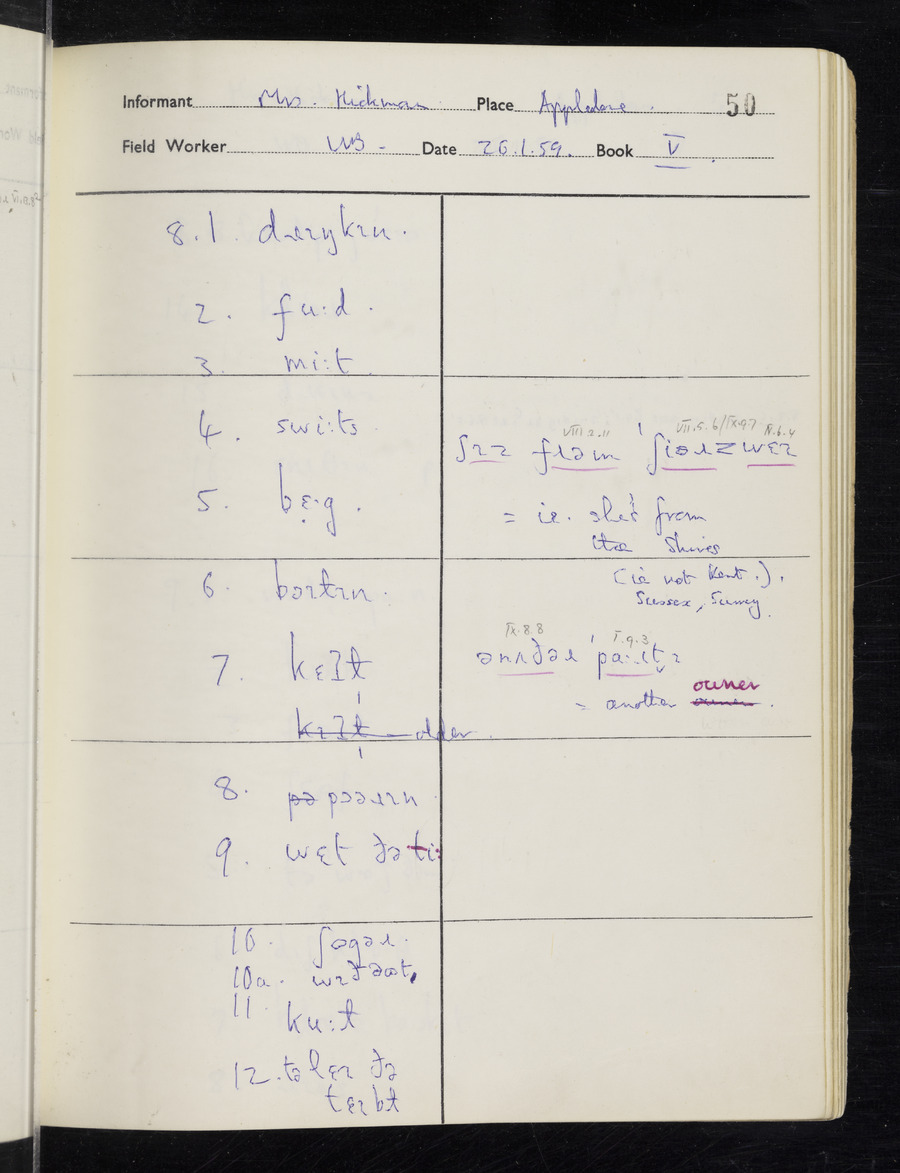 Informant Mrs. Hickman Place Appledore. 50
Field Worker WB - Date 26.1.59. Book V
8.1. dɹɪŋkɪn.
2. fu:d.
3. mi:t
4. swi:ts
5. bɛ̣·g.
6. bɒɪtɪn.
7. kɛɫt
kɪɫt — older.
8. pɔ pɔəɹɪn
9. wɛt ðə ti:
10. ʃɒgəɹ.
10a. wɪðəʊt,
11. ku:ɫ
12. tə lɛɪ ðə
tɛɪbɫ
VIII.2.11 VII.5.6/IX.9.7 IV.6.4
ʃɪz fɹəm ˈʃiəɹzwɛɪ
= ie. she's from
the Shires
(ie not Kent.).
Sussex, Surrey.
IX.8.8 V.9.3
ənʌðəɹ ˈpa:ɹtɪ
= another owner.
owner